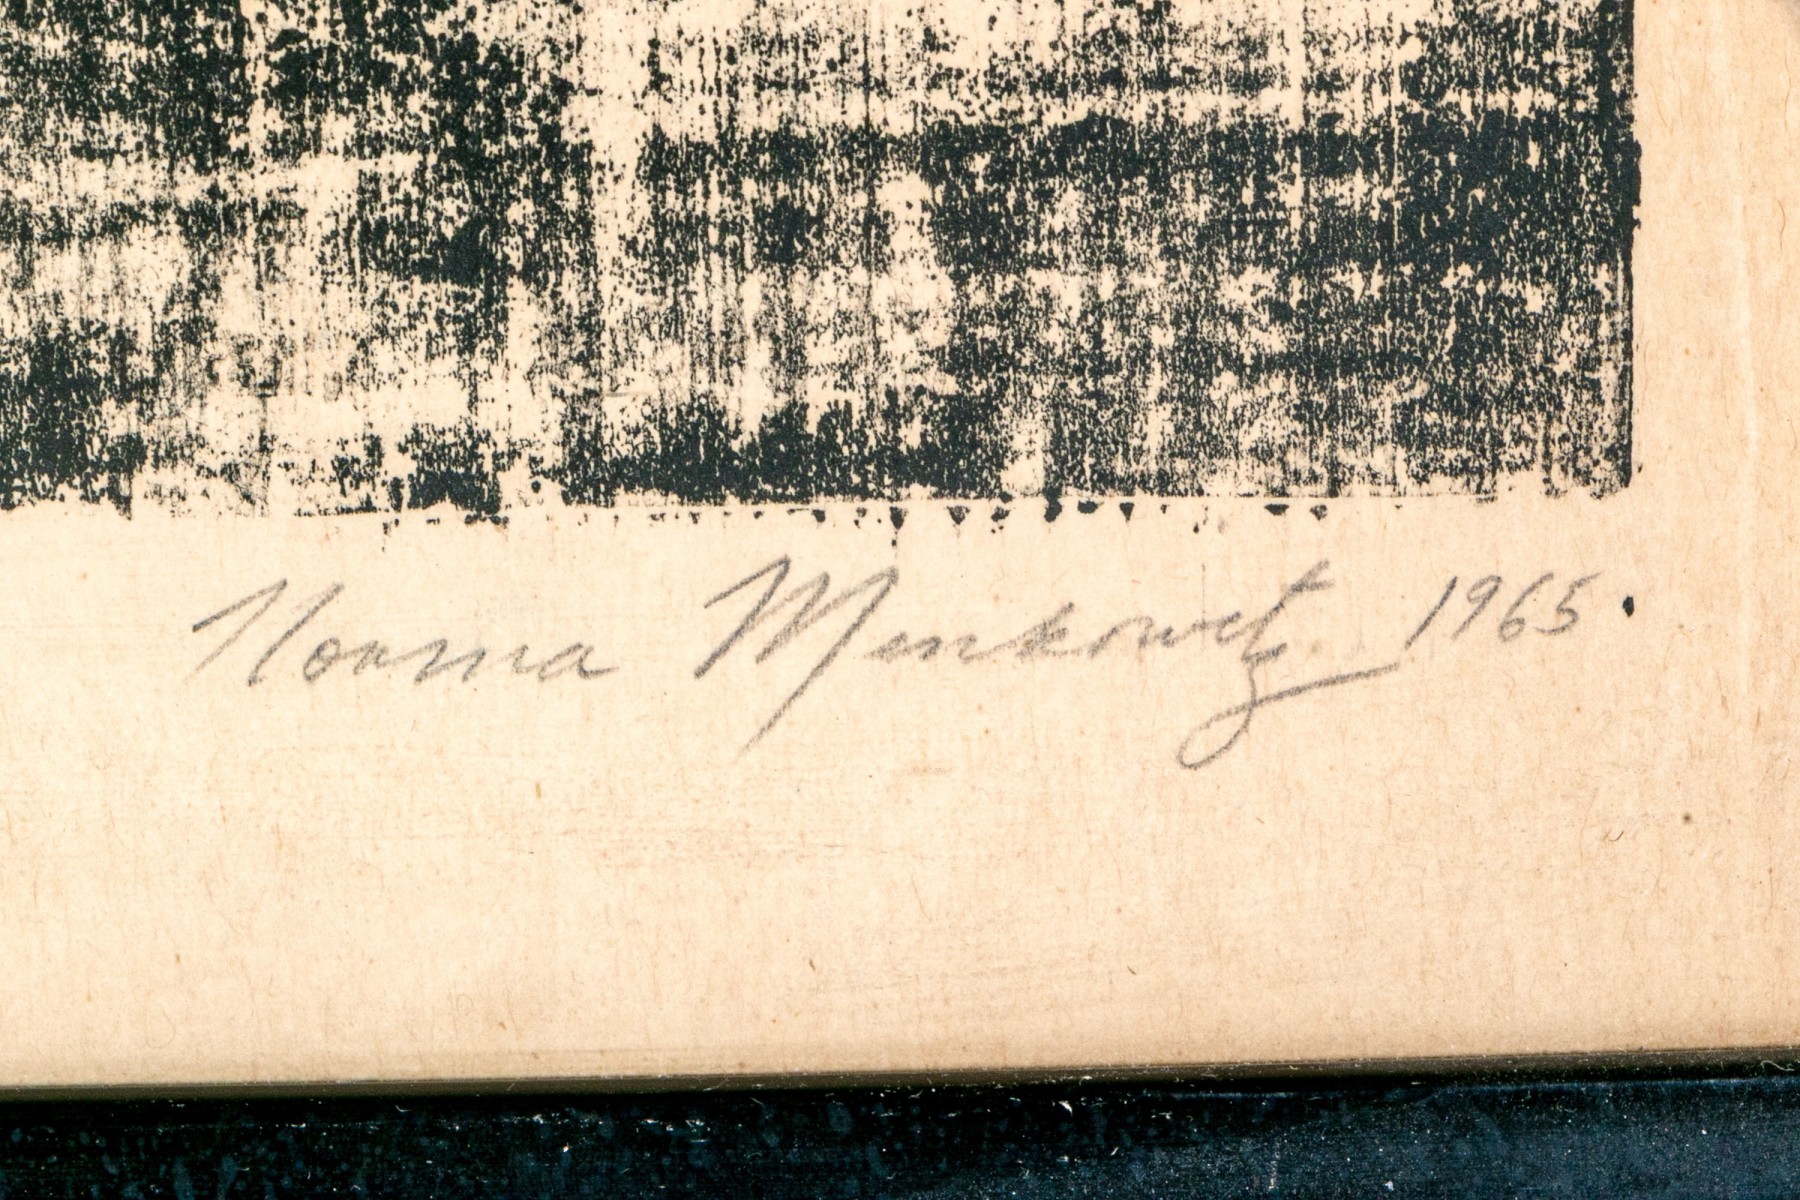 Norma Menkowetz 1965.